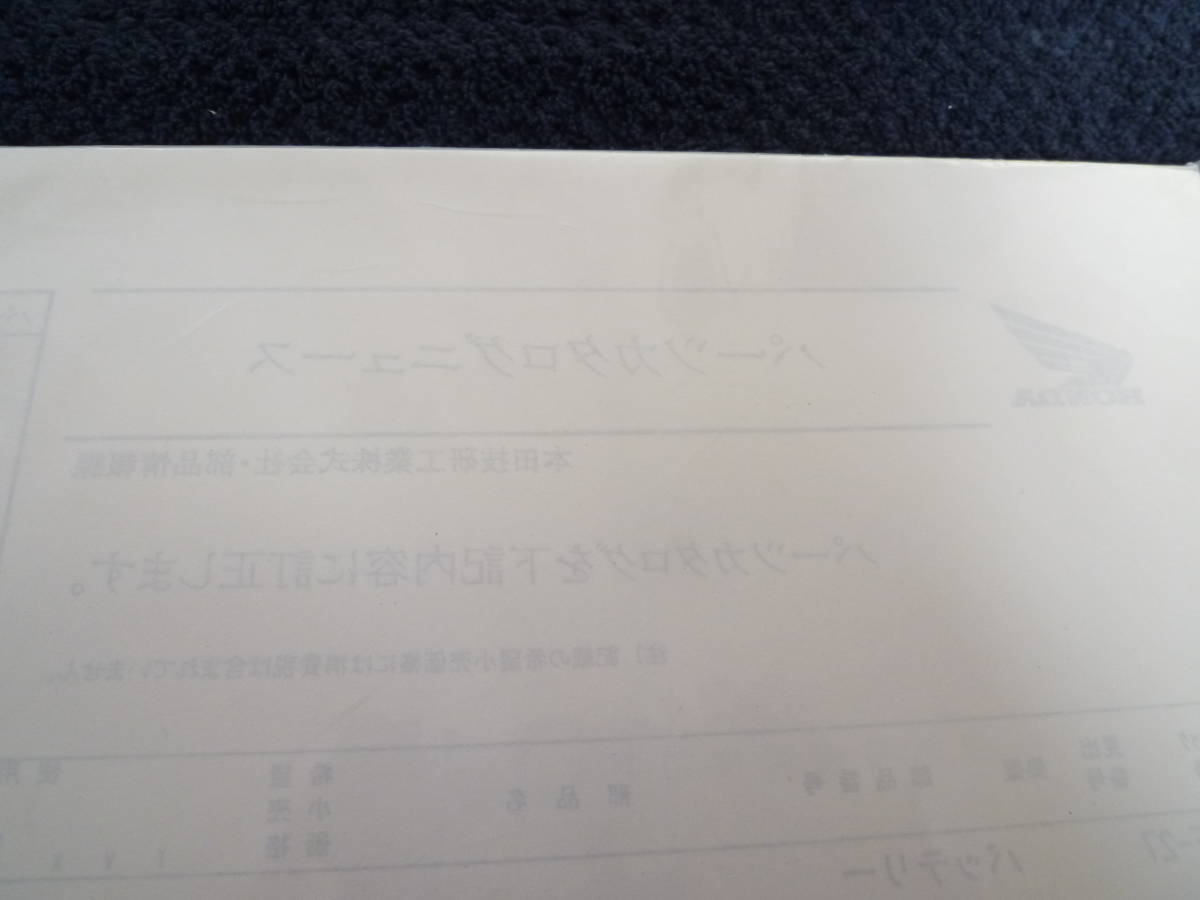 HONDA
パーツカタログニュース
本田技研工業株式会社・部品情報課
パーツカタログを下記内容に訂正します。
注）記載の希望小売価格には消費税は含まれていません。
見出番号 部品番号 部品名 希望小売価格 使用
バッテリー